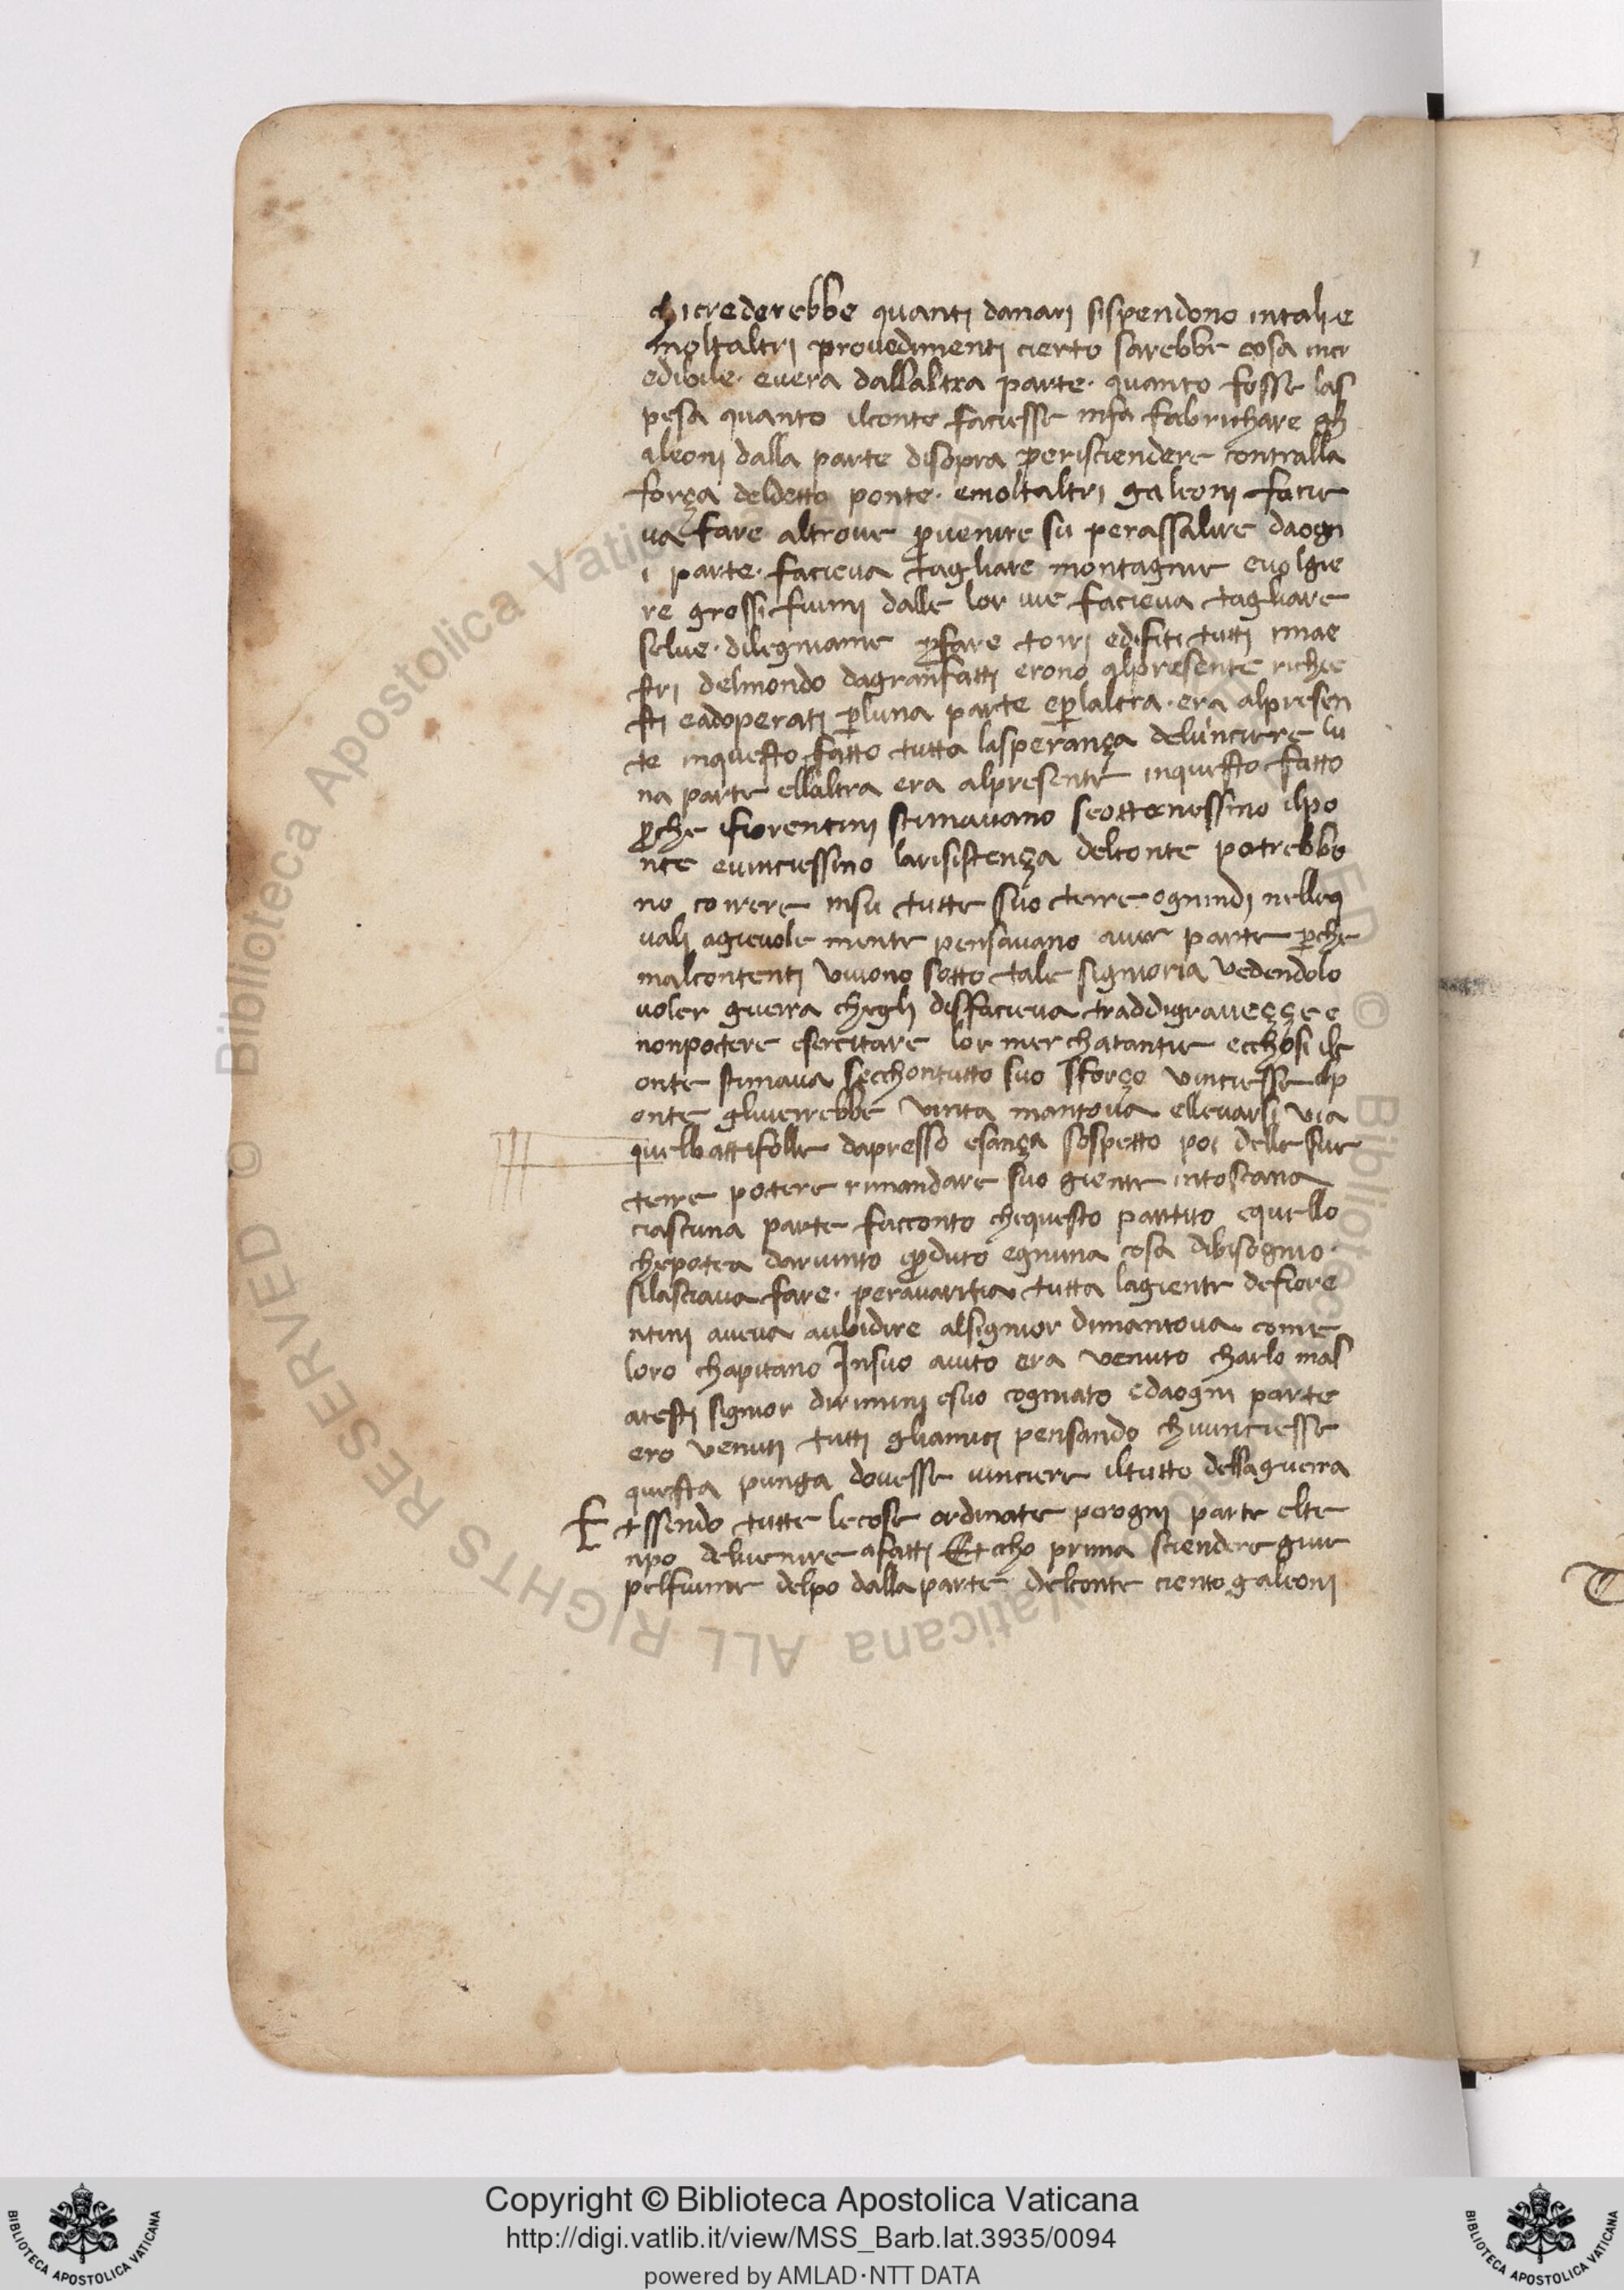 chicrederebbe quanti danari sispendono intali e
moltaltri provedimenti cierto sarebbe cosa incr
edibile · evera dallaltra parte · quanto fosse las
pesa quanto ilconte faciesse infa fabrichare gh
aleoni dalla parte disopra perisciendere contralla
força deldetto ponte · emoltaltri galeoni facie
va fare altrove pvenire su perassalire daogn
i parte · facieva tagliare montagnie evolgie
re grossi fiumi dalle lor vie facieva tagliare
selve · dilegniame pfare torri edifiti tutti imae
stri delmondo dagranfatti erono alpresente richie
sti eadoperati pluna parte eplaltra · era alpresen
te inquesto fatto tutta lasperança delvinciere lu
na parte ellaltra era alpresente inquesto fatto
pche ifiorentini stimavano seottenessino ilpo
nte evinciessino laresistença delconte potrebbo
no correre insu tutte suo terre ognindi nelleq
uali agievole mente pensavano aver parte pche
malcontenti vivono sotto tale signioria vedendolo
voler guerra chegli disfacieva traddigraveççe e
nonpotere esercitare lor merchatantie ecchosi ilc
onte stimava secchontutto suo sforço vinciesse ilp
onte gliverrebbe vinta mantova ellevarsi via
quelbattifolle dapresso esança sospetto poi delle sue
terre potere rimandare suo giente intoscana
ciascuna parte facconto chequesto partito equello
chepotea darvinto epduto egniuna cosa dibisognio ·
silasciava fare · peravaritia tutta lagiente defiore
ntini aveva aubidire alsignior dimantova come
loro chapitano Insuo aiuto era venuto charlo mal
atesti signior dirimini esuo cogniato edaogni parte
ero venuti tutti gliamici pensando chivinciesse
questa punga dovesse vinciere iltutto dellaguerra
E essendo tutte lecose ordinate perogni parte elte
npo delvenire afatti Eccho prima sciendere giue
pelfiume delpo dallaparte delconte ciento galeoni
Copyright © Biblioteca Apostolica Vaticana
http://digi.vatlib.it/view/MSS_Barb.lat.3935/0094
powered by AMLAD·NTT DATA
BIBLIOTECA APOSTOLICA VATICANA
BIBLIOTECA APOSTOLICA VATICANA